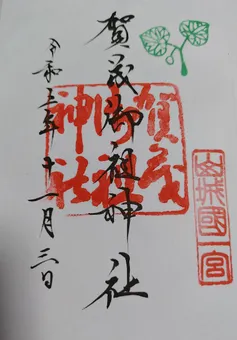 山城國一宮
賀茂御祖神社
賀茂
御祖
神社
令和年十一月三日